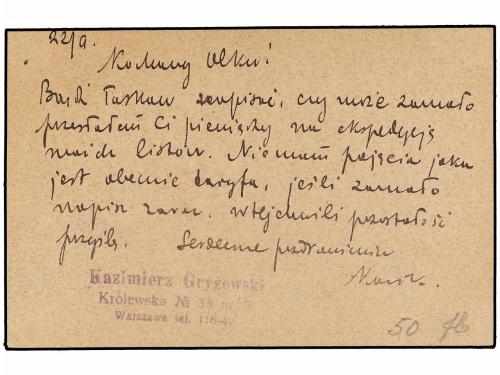 22/9.
Kochany Olku!
Bądź łaskaw zapisać, czy może zamało
przesłałem Ci pieniędzy na ekspedycję
moich listów. Niemam pojęcia jaka
jest obecnie taryfa, jeśli zamało
napisz zaraz, w tej chwili pozostałość
prześlę. Serdeczne pozdrowienia
Kazimierz Gryżewski
Królewska № 33 m
Warszawa tel. 118-
50